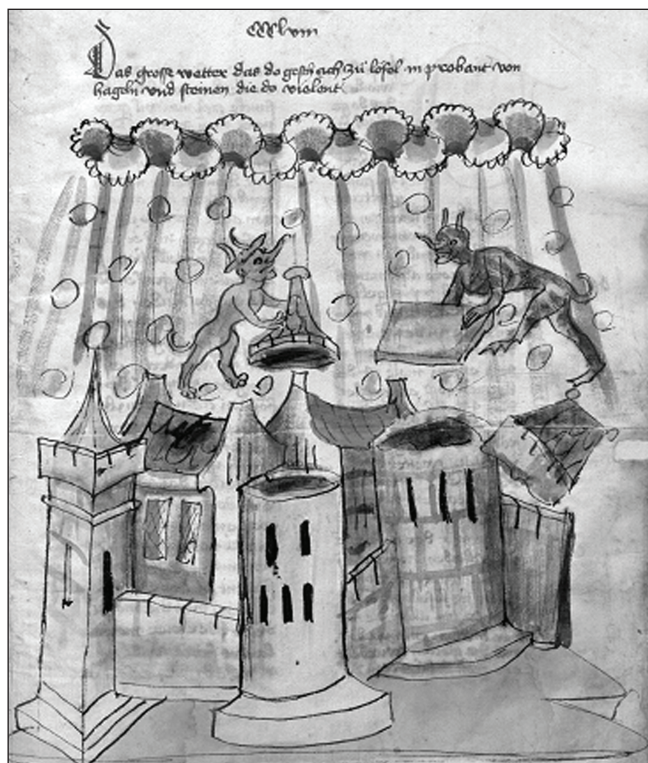 Das grosse wetter das do geschach zů lösel in probant von
hageln vnd steinen die do vielent